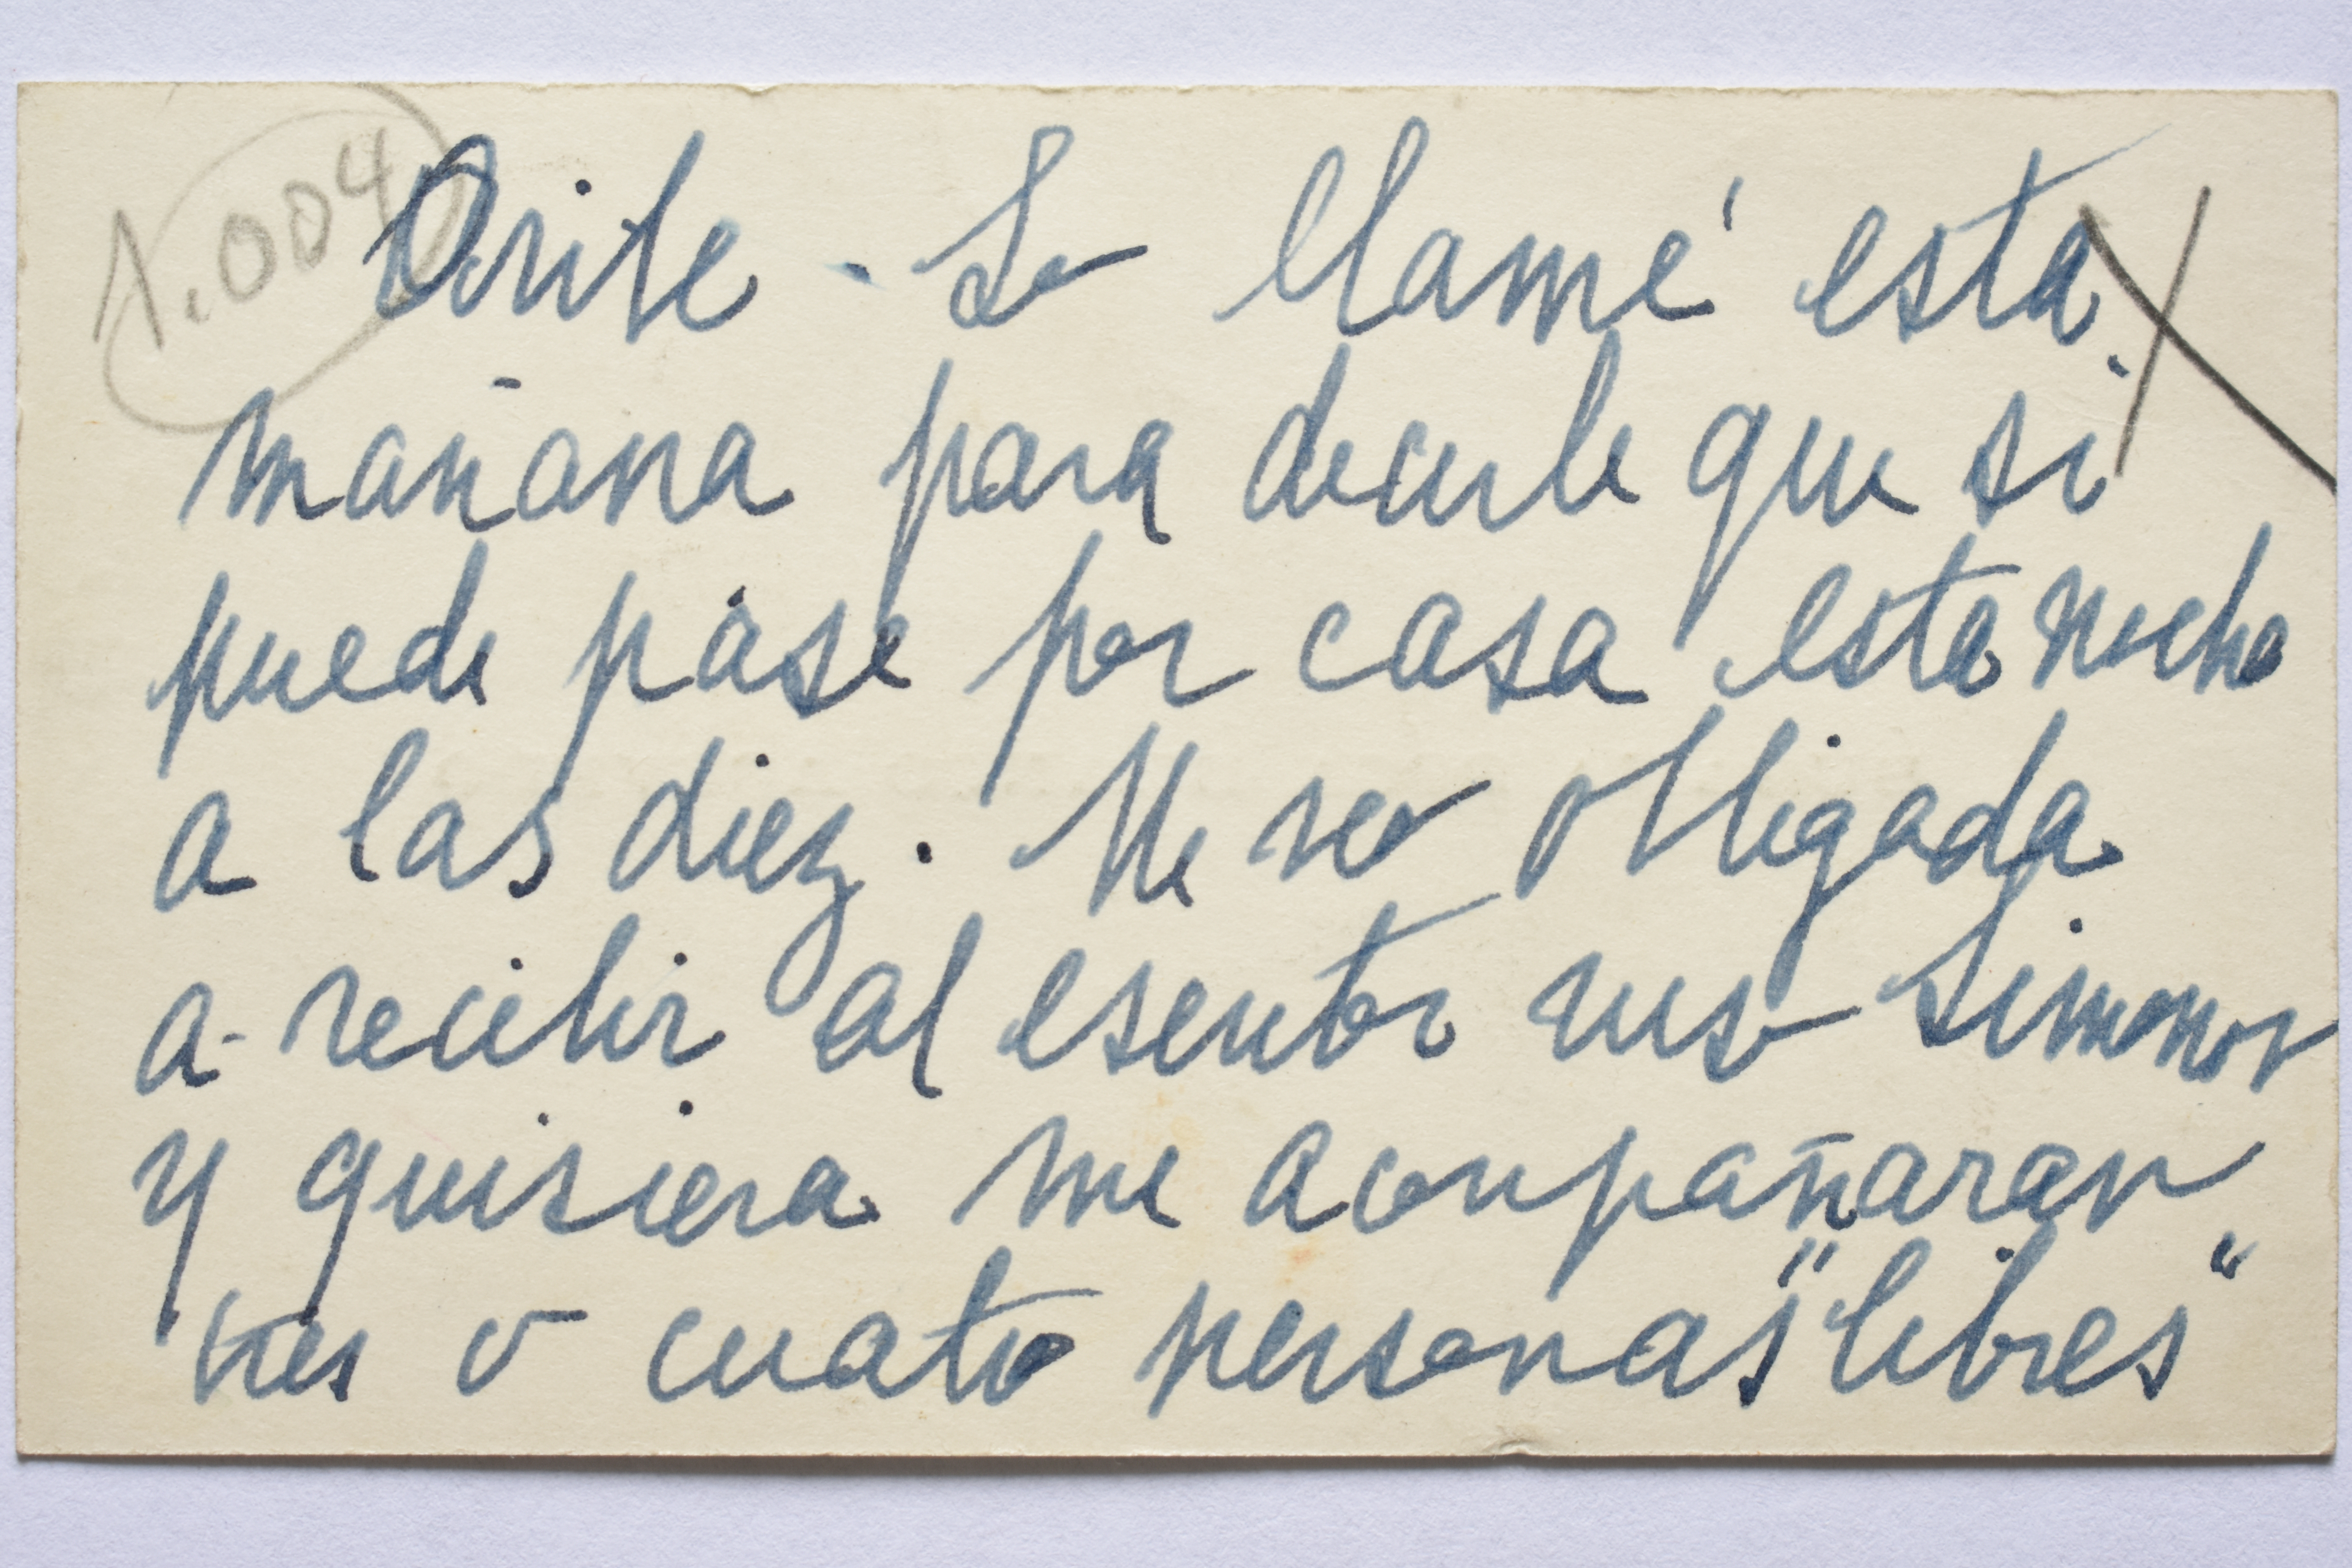 1.004
Oribe - Lo llamé esta
mañana para decirle que si
puede pase por casa esta noche
a las diez. Me veo obligada
a recibir al escritor ruso Simonov
y quisiera me acompañaran
tres o cuatro personas "libres"